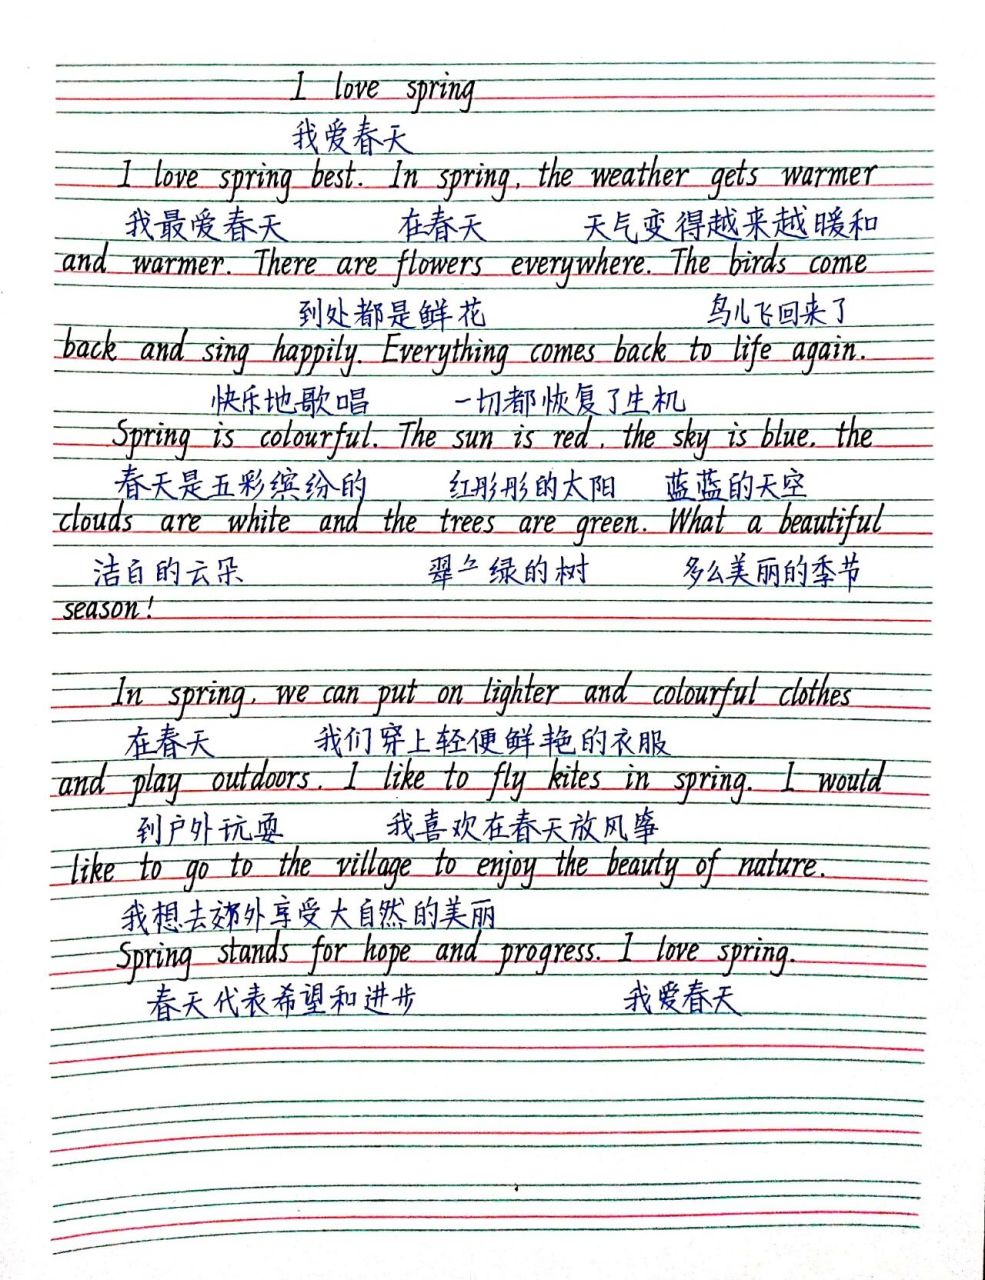 I love spring
我爱春天
I love spring best. In spring, the weather gets warmer
我最爱春天 在春天 天气变得越来越暖和
and warmer. There are flowers everywhere. The birds come
到处都是鲜花 鸟儿飞回来了
back and sing happily. Everything comes back to life again.
快乐地歌唱 一切都恢复了生机
Spring is colourful. The sun is red, the sky is blue, the
春天是五彩缤纷的 红彤彤的太阳 蓝蓝的天空
clouds are white and the trees are green. What a beautiful
洁白的云朵 翠绿的树 多么美丽的季节
season!
In spring, we can put on lighter and colourful clothes
在春天 我们穿上轻便鲜艳的衣服
and play outdoors. I like to fly kites in spring. I would
到户外玩耍 我喜欢在春天放风筝
like to go to the village to enjoy the beauty of nature.
我想去郊外享受大自然的美丽
Spring stands for hope and progress. I love spring.
春天代表希望和进步 我爱春天